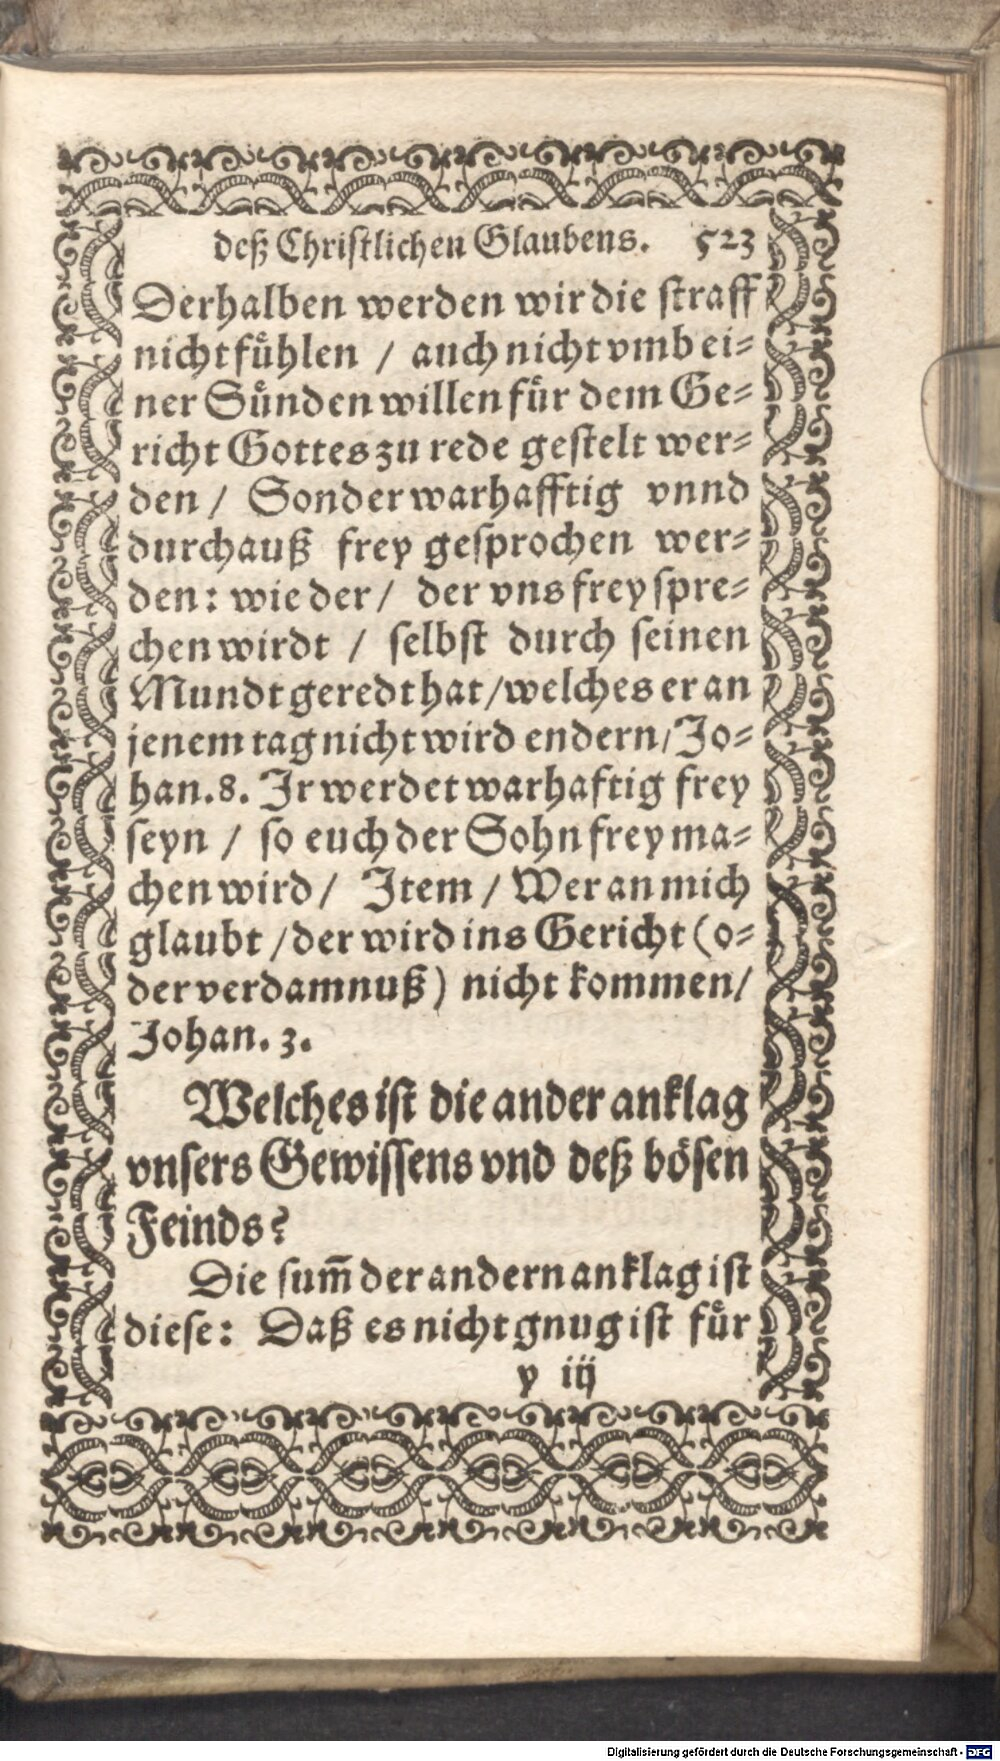 deß Christlichen Glaubens. 523
Derhalben werden wir die straff
nicht fuͤhlen / auch nicht vmb ei-
ner Suͤnden willen fuͤr dem Ge-
richt Gottes zu rede gestelt wer-
den / Sonder warhafftig vnnd
durchauß frey gesprochen wer-
den: wie der / der vns frey spre-
chen wirdt / selbst durch seinen
Mundt geredt hat / welches er an
jenem tag nicht wird endern / Jo-
han. 8. Ir werdet warhaftig frey
seyn / so euch der Sohn frey ma-
chen wird / Item / Wer an mich
glaubt / der wird ins Gericht (o-
der verdamnuß) nicht kommen /
Johan. 3.
Welches ist die ander anklag
vnsers Gewissens vnd deß bösen
Feinds?
Die sum̃ der andern anklag ist
diese: Daß es nicht gnug ist fuͤr
y iij
Digitalisierung gefördert durch die Deutsche Forschungsgemeinschaft - DFG